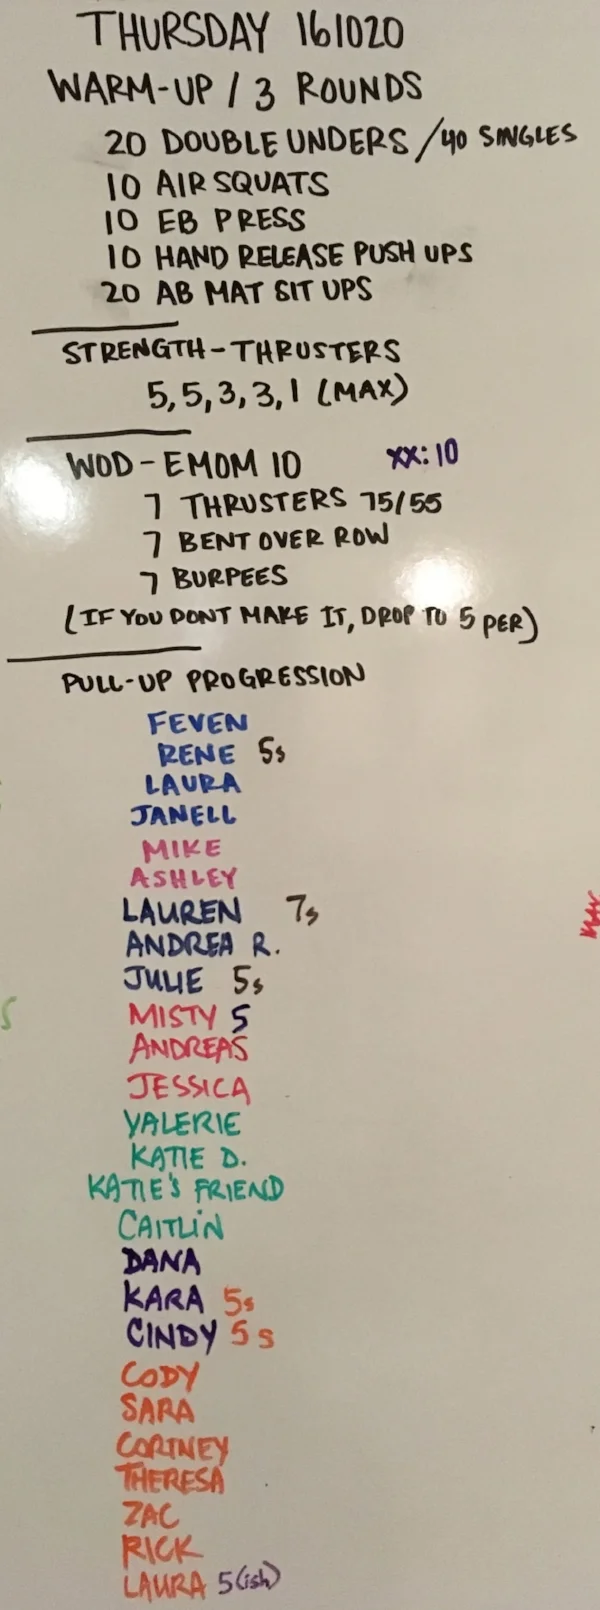 THURSDAY 161020
WARM-UP / 3 ROUNDS
20 DOUBLE UNDERS / 40 SINGLES
10 AIR SQUATS
10 EB PRESS
10 HAND RELEASE PUSH UPS
20 AB MAT SIT UPS
STRENGTH - THRUSTERS
5, 5, 3, 3, 1 (MAX)
WOD - EMOM 10 xx:10
7 THRUSTERS 75/55
7 BENT OVER ROW
7 BURPEES
(IF YOU DONT MAKE IT, DROP TO 5 PER)
PULL-UP PROGRESSION
FEVEN
RENE 5s
LAURA
JANELL
MIKE
ASHLEY
LAUREN 7s
ANDREA R.
JULIE 5s
MISTY 5
ANDREAS
JESSICA
VALERIE
KATIE D.
KATIE'S FRIEND
CAITLIN
DANA
KARA 5s
CINDY 5s
CODY
SARA
CORTNEY
THERESA
ZAC
RICK
LAURA 5(ish)